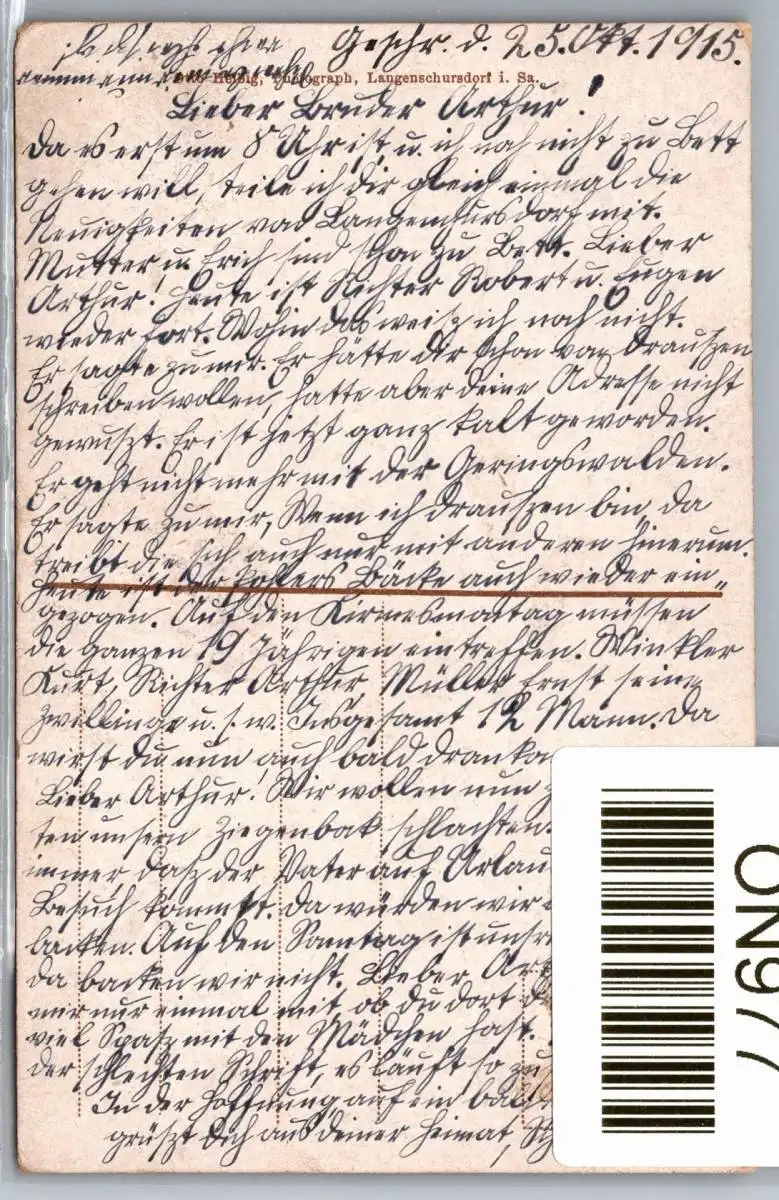 Geschr. d. 25. Okt. 1915.
Otto Helbig, Photograph, Langenschursdorf i. Sa.
Lieber Bruder Arthur!
Da es erst um 8 Uhr ist u. ich noch nicht zu Bett
gehen will, teile ich dir gleich einmal die
Neuigkeiten von Langenchursdorf mit.
Mutter u. Erich sind schon zu Bett. Lieber
Arthur! Heute ist Richter Robert u. Eugen
wieder fort. Wohin das weisz ich noch nicht.
Er sagte zu mir. Er hätte dir schon von drauszen
schreiben wollen, hatte aber deine Adresse nicht
gewuszt. Er ist jetzt ganz kalt geworden.
Er geht nicht mehr mit der Geringswalden.
Er sagte zu mir, Wenn ich drauszen bin, da
treibt die sich auch nur mit anderen hinerum.
Heute ist der Bäcke auch wieder ein-
gezogen. Auf den Kirmesmontag müssen
die ganzen 19 Jährigen eintreffen. Winkler
Kurt, Richter Arthur, Müller Ernst seine
Zwillinge u. s. w. Insgesamt 12 Mann. Da
wirst du nun auch bald dran
Lieber Arthur! Wir wollen nun
ten unsern Ziegenbok schlachten.
immer, dasz der Vater auf Urlau
Besuch kommt. Da würden wir
backen. Auf den Sonntag ist unsre
da backen wir nicht. Lieber Art
mir nur einmal mit, ob du dort
viel Spasz mit den Mädchen hast.
der schlechten Schrift, es läuft so zu
In der Hoffnung auf ein bald
grüszt Dich aus deiner Heimat,
ON977